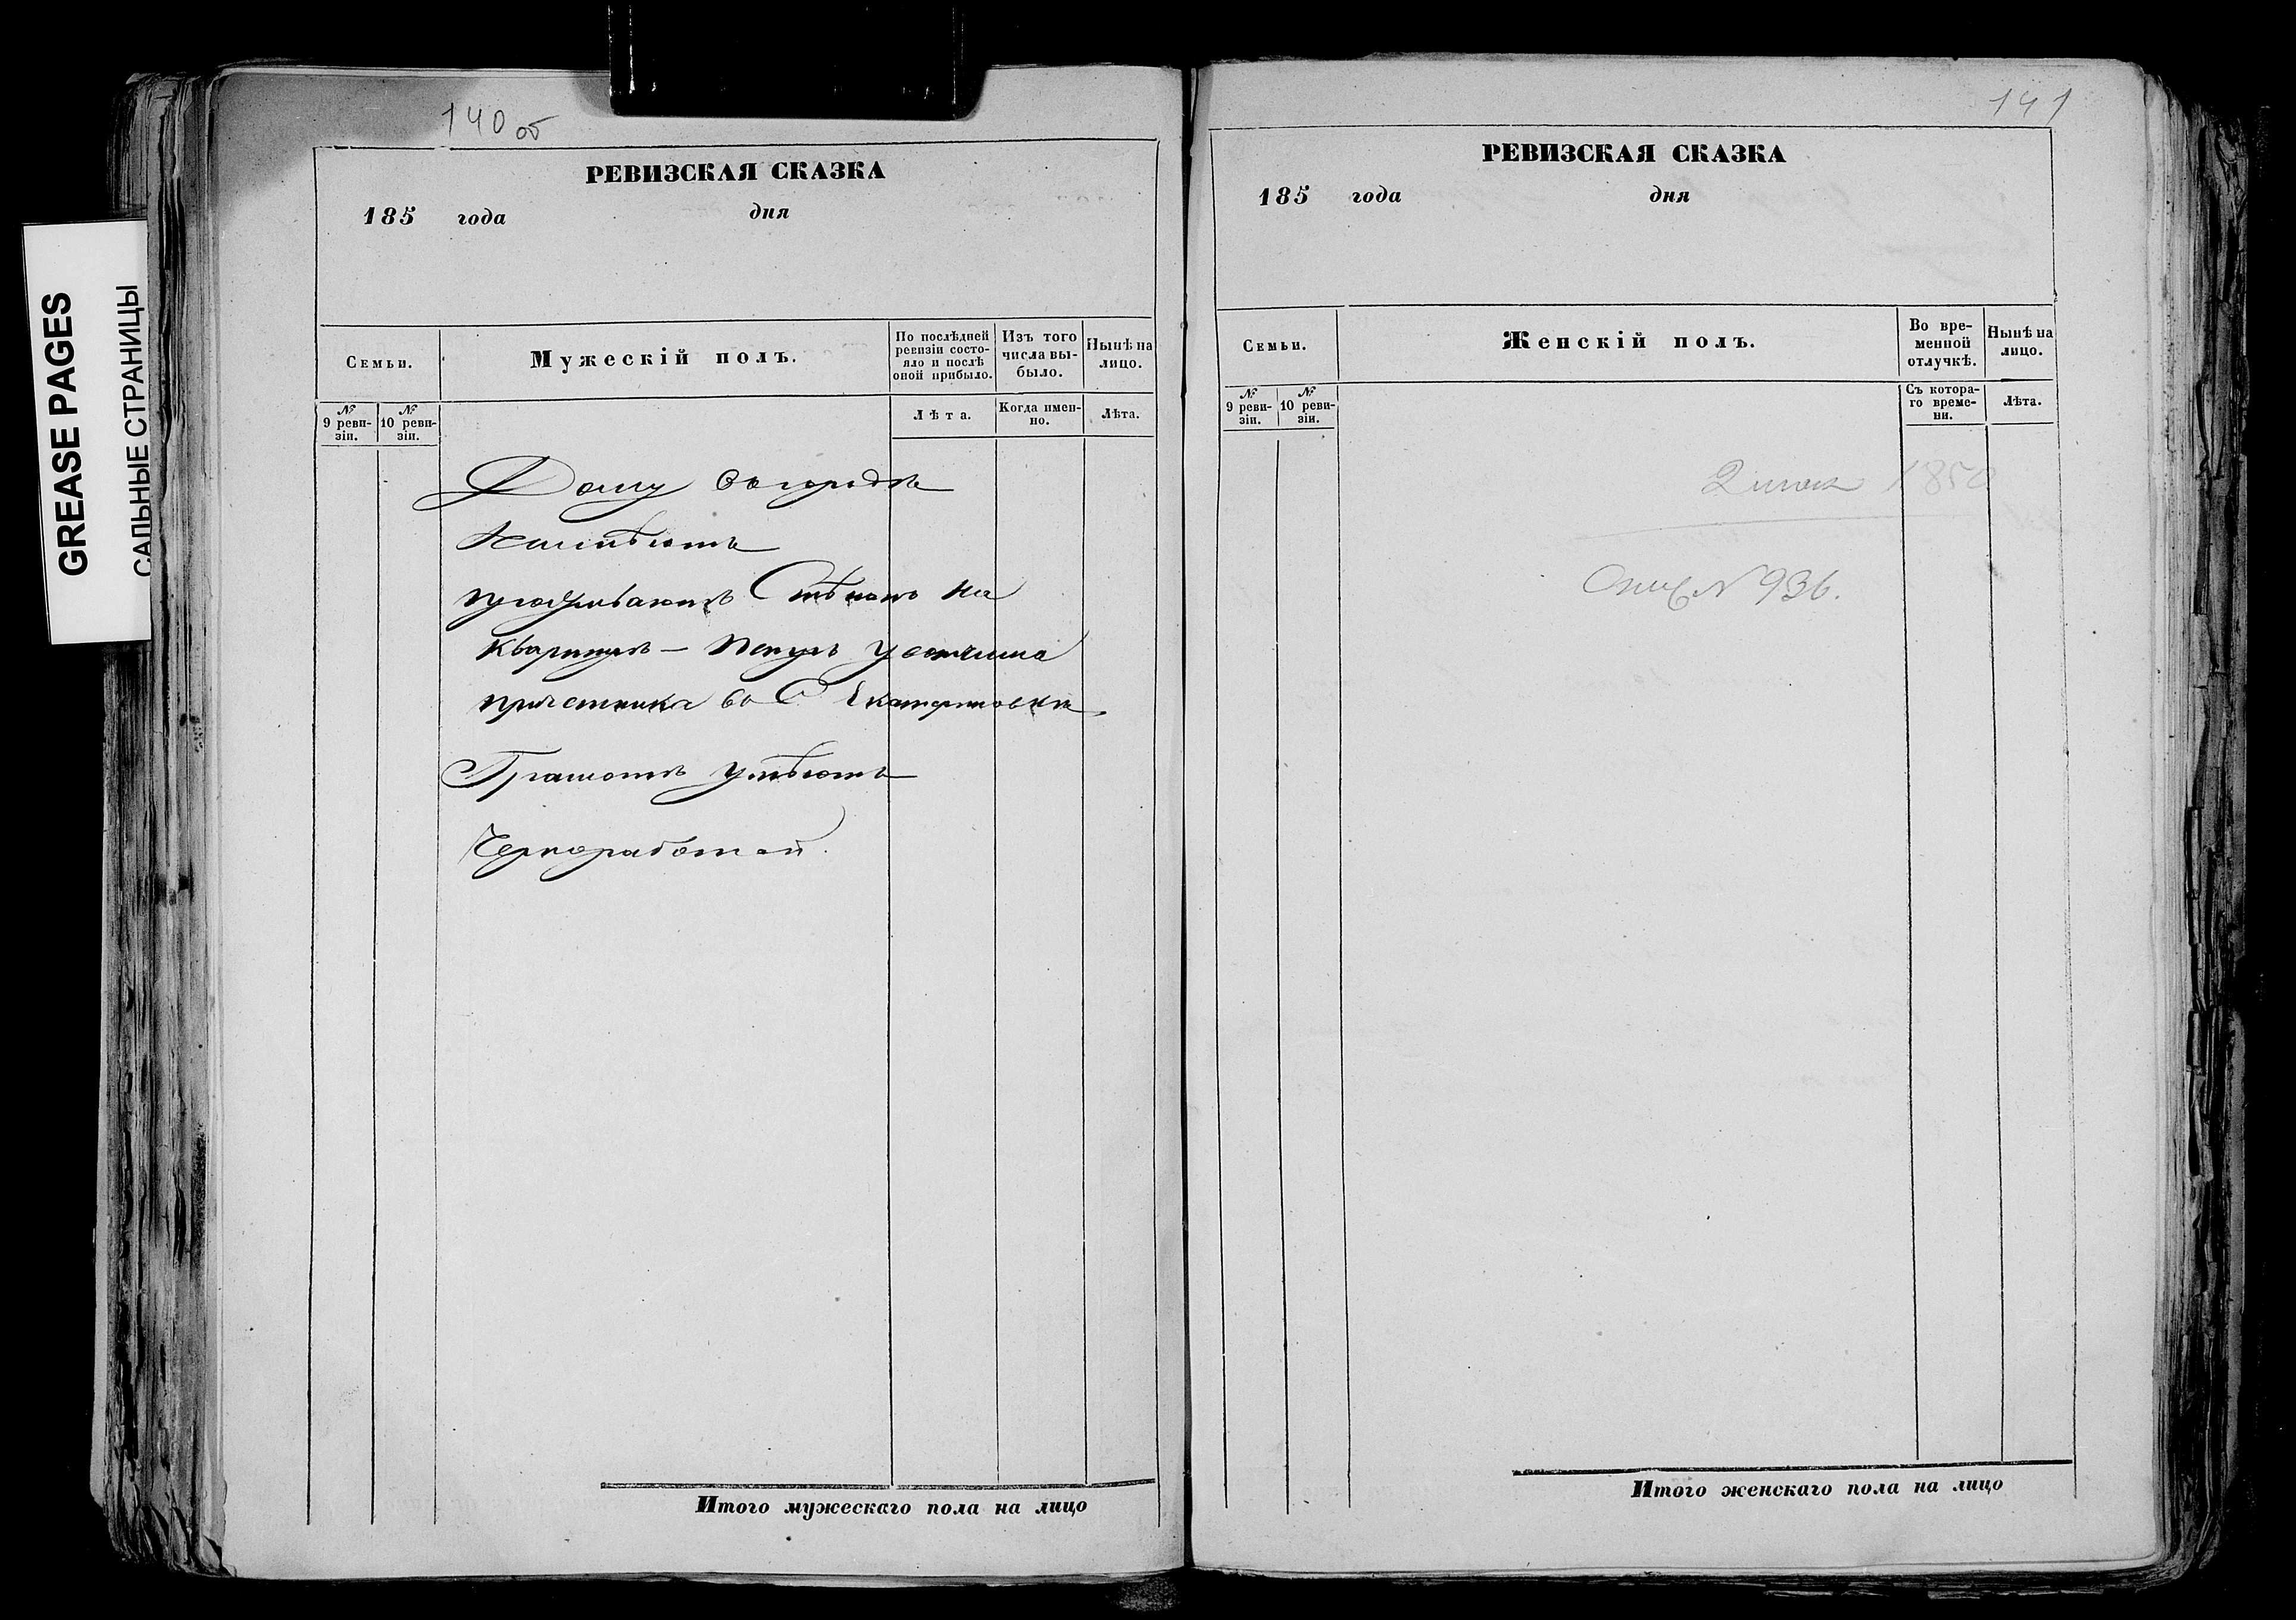 GREASE PAGES
САЛЬНЫЕ СТРАНИЦЫ
140 об
РЕВИЗСКАЯ СКАЗКА
185 года дня
Семьи.
Мужескій полъ.
По послѣдней ревизіи состояло и послѣ оной прибыло.
Изъ того числа выбыло.
Нынѣ на лицо.
№ 9 ревизіи.
№ 10 ревизіи.
Лѣта.
Когда именно.
Лѣта.
Дому въ городѣ
Неимѣютъ
Степанъ на
квартирѣ — Петръ у
во С Екатериновки
Грамотѣ умѣютъ
Чернорабочий.
Итого мужескаго пола на лицо
141
РЕВИЗСКАЯ СКАЗКА
185 года дня
Семьи.
Женскій полъ.
Во временной отлучкѣ.
Нынѣ на лицо.
№ 9 ревизіи.
№ 10 ревизіи.
Съ котораго времени.
Лѣта.
1850
№ 936.
Итого женскаго пола на лицо